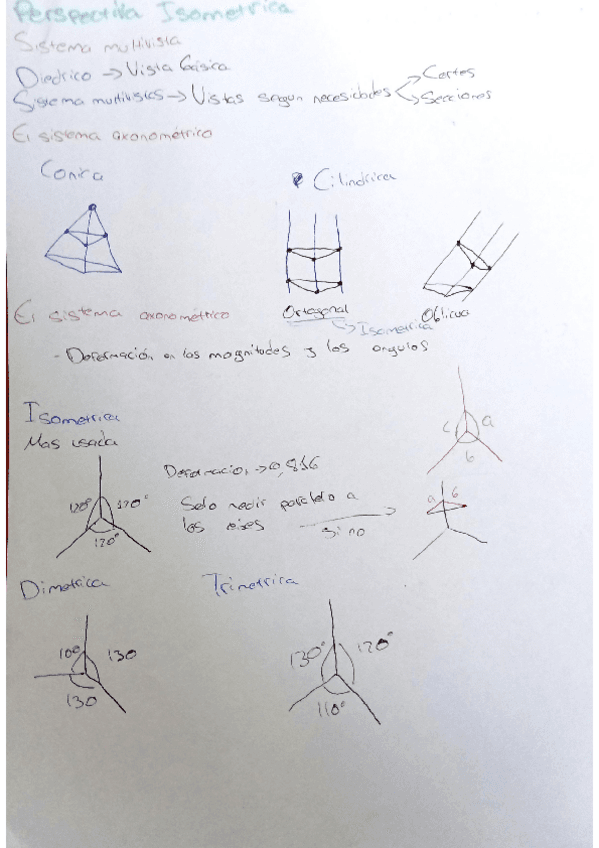 Perspectiva Isometrica
Sistema multivista
Diedrico → Vista básica
Sistema multivistas → Vistas segun necesidades
Cortes
Secciones
El sistema axonométrico
Conica
Cilindrica
El sistema axonométrico
Ortogonal
Isometrica
Oblicua
- Deformación en las magnitudes y los angulos
Isometrica
Mas usada
c a
b
Deformacion → 0,816
120° 120°
120°
Solo medir paralelo a
los ejes
si no
a b
Dimetrica
Trimetrica
100 130
130
130° 120°
110°